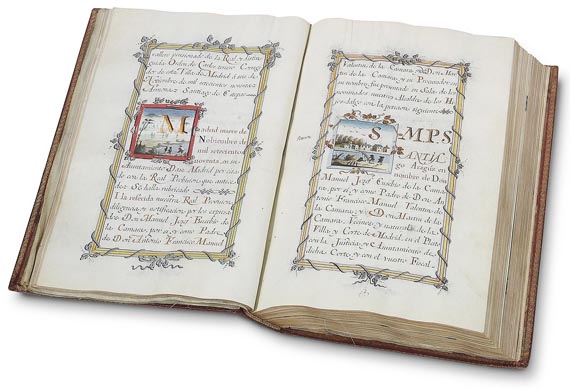 cavallero pensionado de la Real y distin
guida Orden de Carlos tercero Corregi
dor de esta Villa de Madrid à seis de
Noviembre de mil setecientos noventa
Armona = Santiago de Estepar
Madrid nueve de
Noviembre de
mil setecientos
noventa, en su
Ayuntamiento
con la Real Provision que antece
de. Se halla rubricado
I la referida nuestra Real Provision
diligencia y notificacion, por los expresa
dos Don Manuel Josef Eusebio de
la Camara, por si y como Padre
de Don Antonio Francisco Manuel
Valentin de la Camara, y Don Mar
tin de la Camara, y su Procurador en
su nombre, fue presentado en Sala de los
nominados nuestros Alcaldes de los Hi
jos-dalgo con la peticion siguiente
S M.P.S.
ANTIA
go Aragon en
nombre de Don
Manuel Josef Eusebio de la Cama
ra, por si, y como Padre de Don An
tonio Francisco Manuel Valentin de
la Camara; y Don Martin de la
Camara, Vecinos, y naturales de la
Villa, y Corte de Madrid, en el Pleito
con la Justicia, y Ayuntamiento de
dicha Corte, y con el vuestro Fiscal